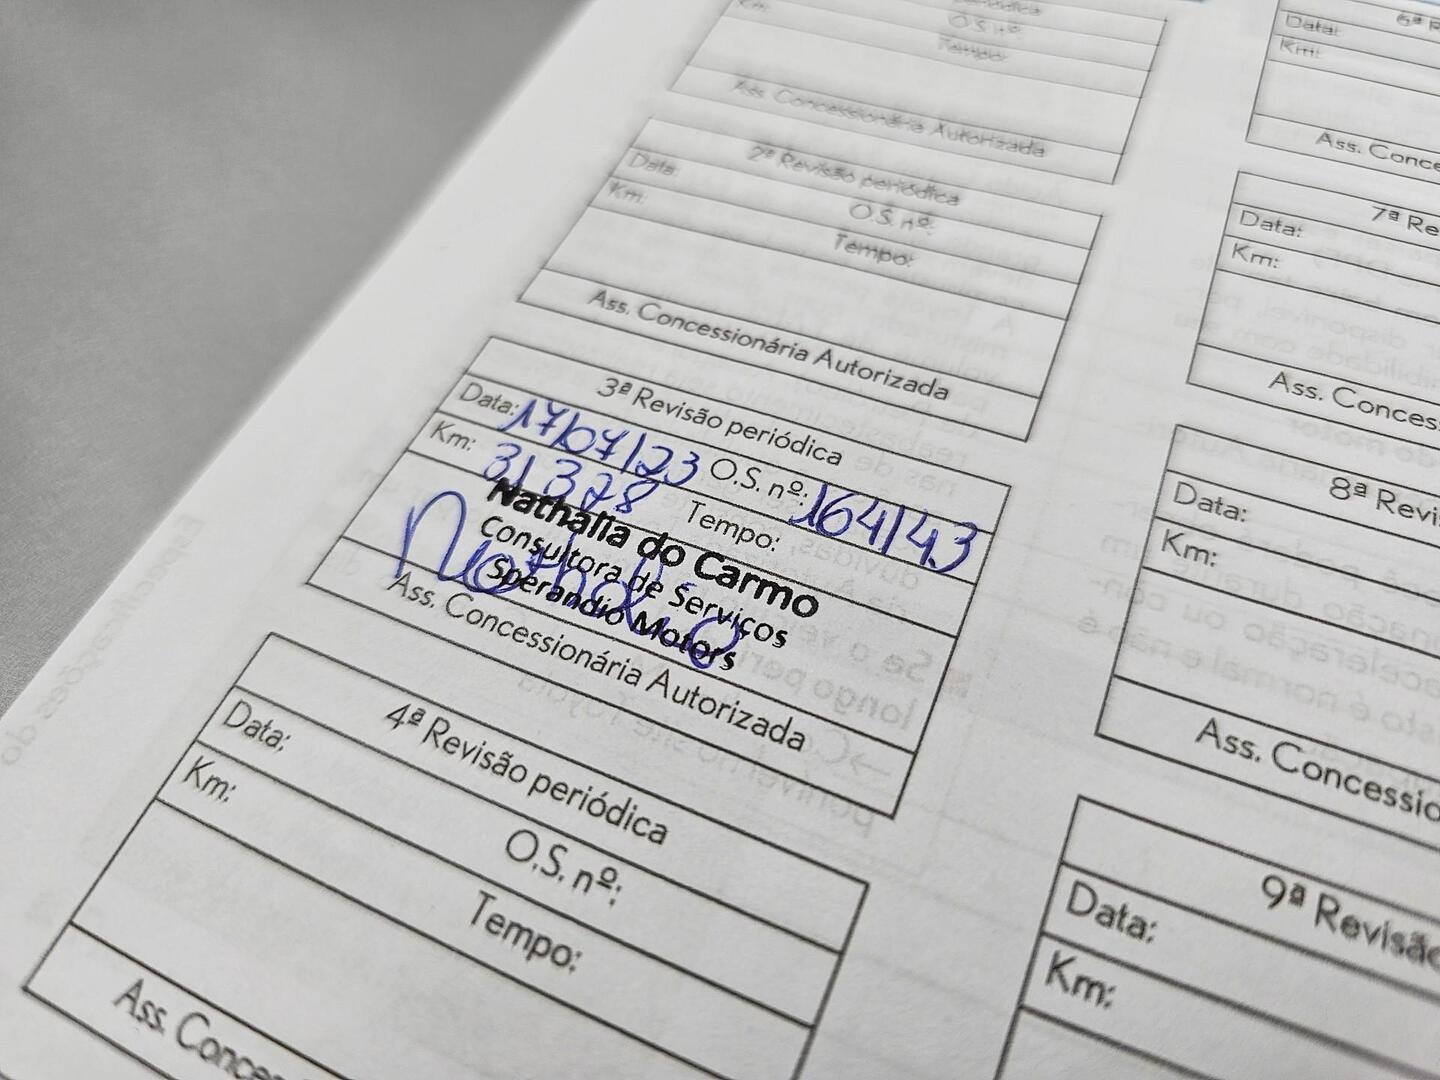 O.S. nº:
Tempo:
Ass. Concessionária Autorizada
2ª Revisão periódica
Data:
O.S. nº:
Km:
Tempo:
Ass. Concessionária Autorizada
3ª Revisão periódica
Data: 17/07/23 O.S. nº: 164143
Km: 31328 Tempo:
Nathalia do Carmo
Consultora de Serviços
Sperandio Motors
Ass. Concessionária Autorizada
4ª Revisão periódica
Data:
O.S. nº:
Km:
Tempo:
Ass. Conce
6ª R
Data:
Km:
Ass. Conce
7ª Re
Data:
Km:
Ass. Conces
8ª Revi
Data:
Km:
Ass. Concessio
9ª Revisão
Data:
Km: